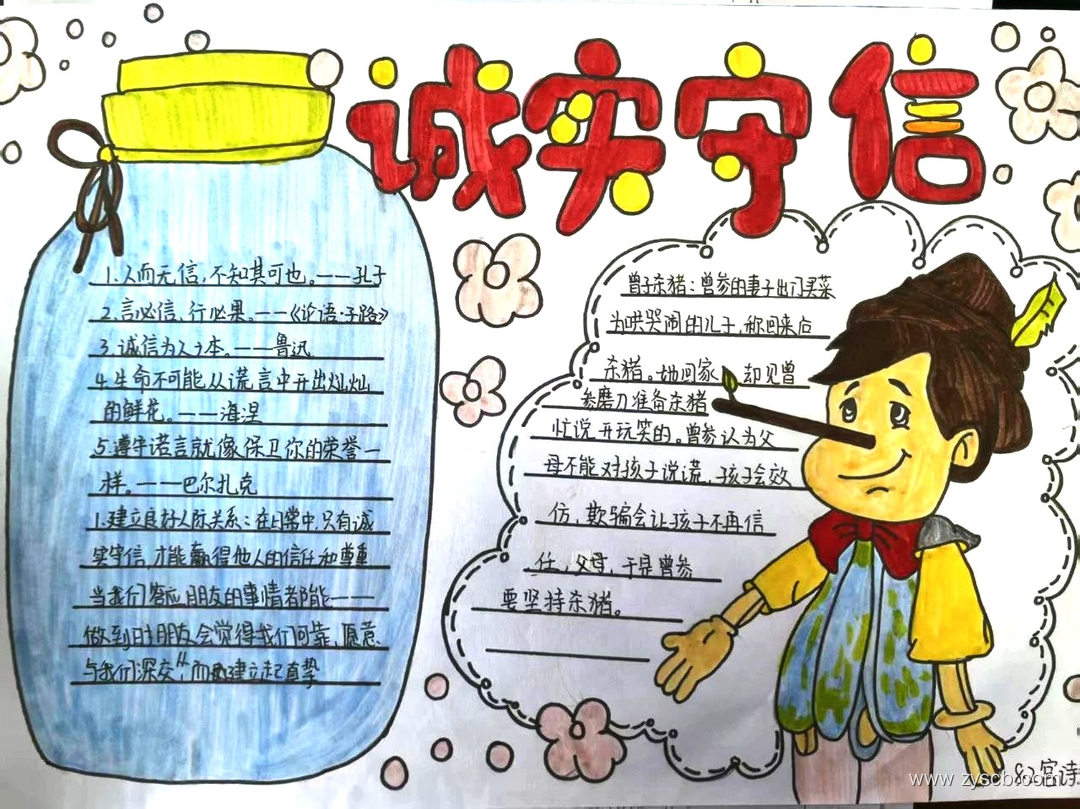 诚实守信
1.人而无信,不知其可也。——孔子
2.言必信、行必果。——《论语·子路》
3.诚信为人之本。——鲁迅
4.生命不可能从谎言中开出灿灿
的鲜花。——海涅
5.遵守诺言就像保卫你的荣誉一
样。——巴尔扎克
1.建立良好人际关系:在日常中,只有诚
实守信,才能赢得他人的信任和尊重
当我们答应朋友的事情都能一一
做到时朋友会觉得我们可靠、愿意
与我们深交,从而建立起真挚
曾子杀猪:曾参的妻子出门买菜
为哄哭闹的儿子,称回来后
杀猪。她回家 却见曾
参磨刀准备杀猪
忙说开玩笑的。曾参认为父
母不能对孩子说谎,孩子会效
仿,欺骗会让孩子不再信
任,父母,于是曾参
要坚持杀猪。
8.2宫诗
www.zyscb.com